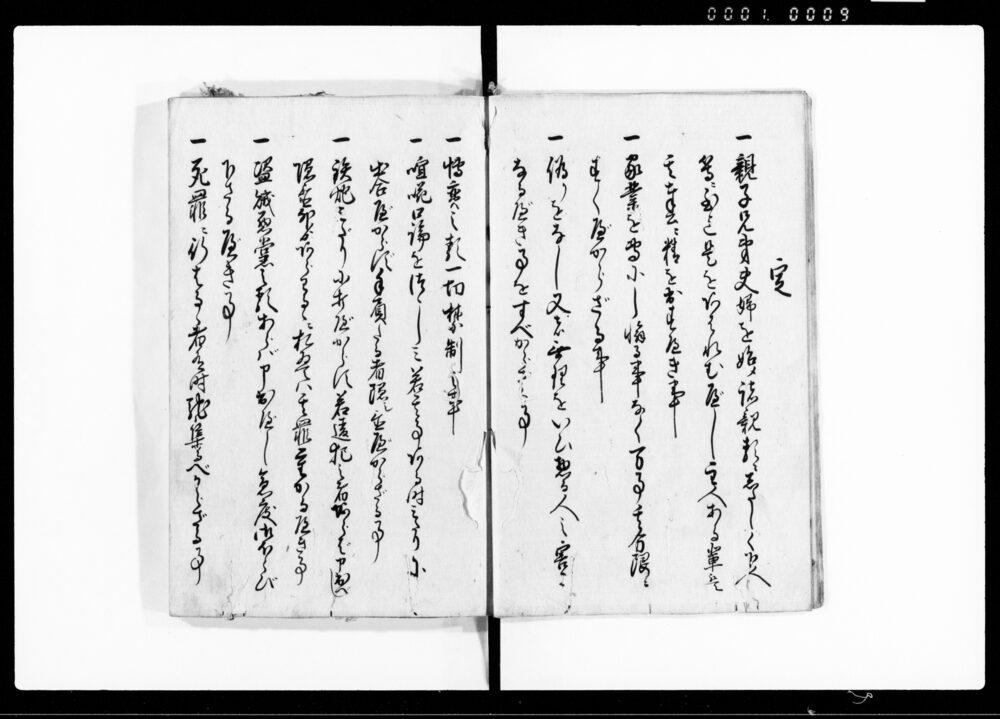 0001. 0009
定
一 親子兄弟夫婦を始め諸親類ニしたしく下人
等ニ至迄是をあはれむへし主人ある輩は
其奉公ニ精を出すへき事
一 家業を専にし懈る事なく万事其分限ニ
すくへからざる事
一 偽りをなし又は無理をいひ惣て人之害ニ
なるへき事をすべからざる事
一 博奕之類一切禁制之事
一 喧嘩口論をつゝしミ若其事ある時ミたりニ
出合へからす手負たる者隠し置へからざる事
一 鉄炮ミだりに打へからす若違犯之者あらは申出へし
隠置却てあらはるゝニおゐてハ其罪重かるへき事
一 盗賊悪党之類あらバ申出へし急度御ほうび
下さるへき事
一 死罪ニ行はるゝ者有時馳集るべからざる事